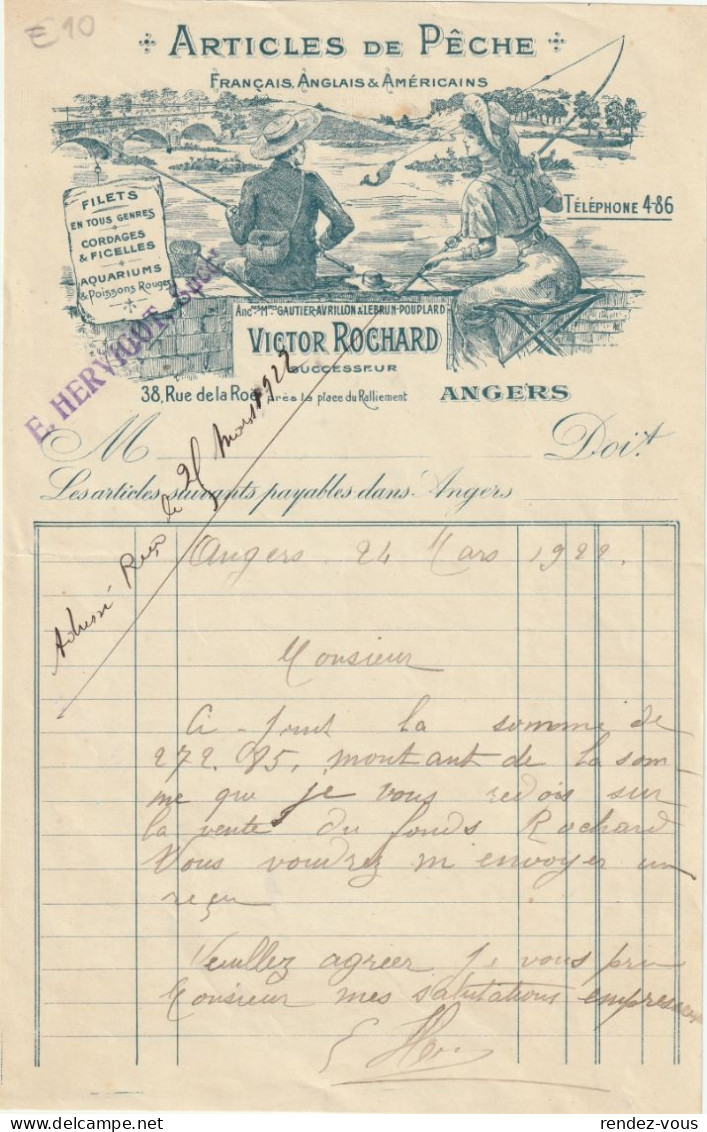 €10
ARTICLES DE PÊCHE
FRANÇAIS, ANGLAIS & AMÉRICAINS
FILETS
EN TOUS GENRES
CORDAGES
& FICELLES
AQUARIUMS
& Poissons Rouges
TÉLÉPHONE 4-86
E. HERVIGOT, Succr
Ancnes Mons GAUTIER-AVRILLON & LEBRUN-POUPLARD
VICTOR ROCHARD
SUCCESSEUR
38, Rue de la Roë, Près la place du Ralliement ANGERS
M Doit
Les articles suivants payables dans Angers
Adressé Reçu le 25 Mars 1922
Angers 24 Mars 1922.
Monsieur
Ci-joint la somme de
272.85, montant de la som-
me que je vous redois sur
la vente du fonds Rochard
Vous voudrez m'envoyer un
reçu
Veuillez agréer Je vous prie
Monsieur mes salutations empressées
rendez-vous